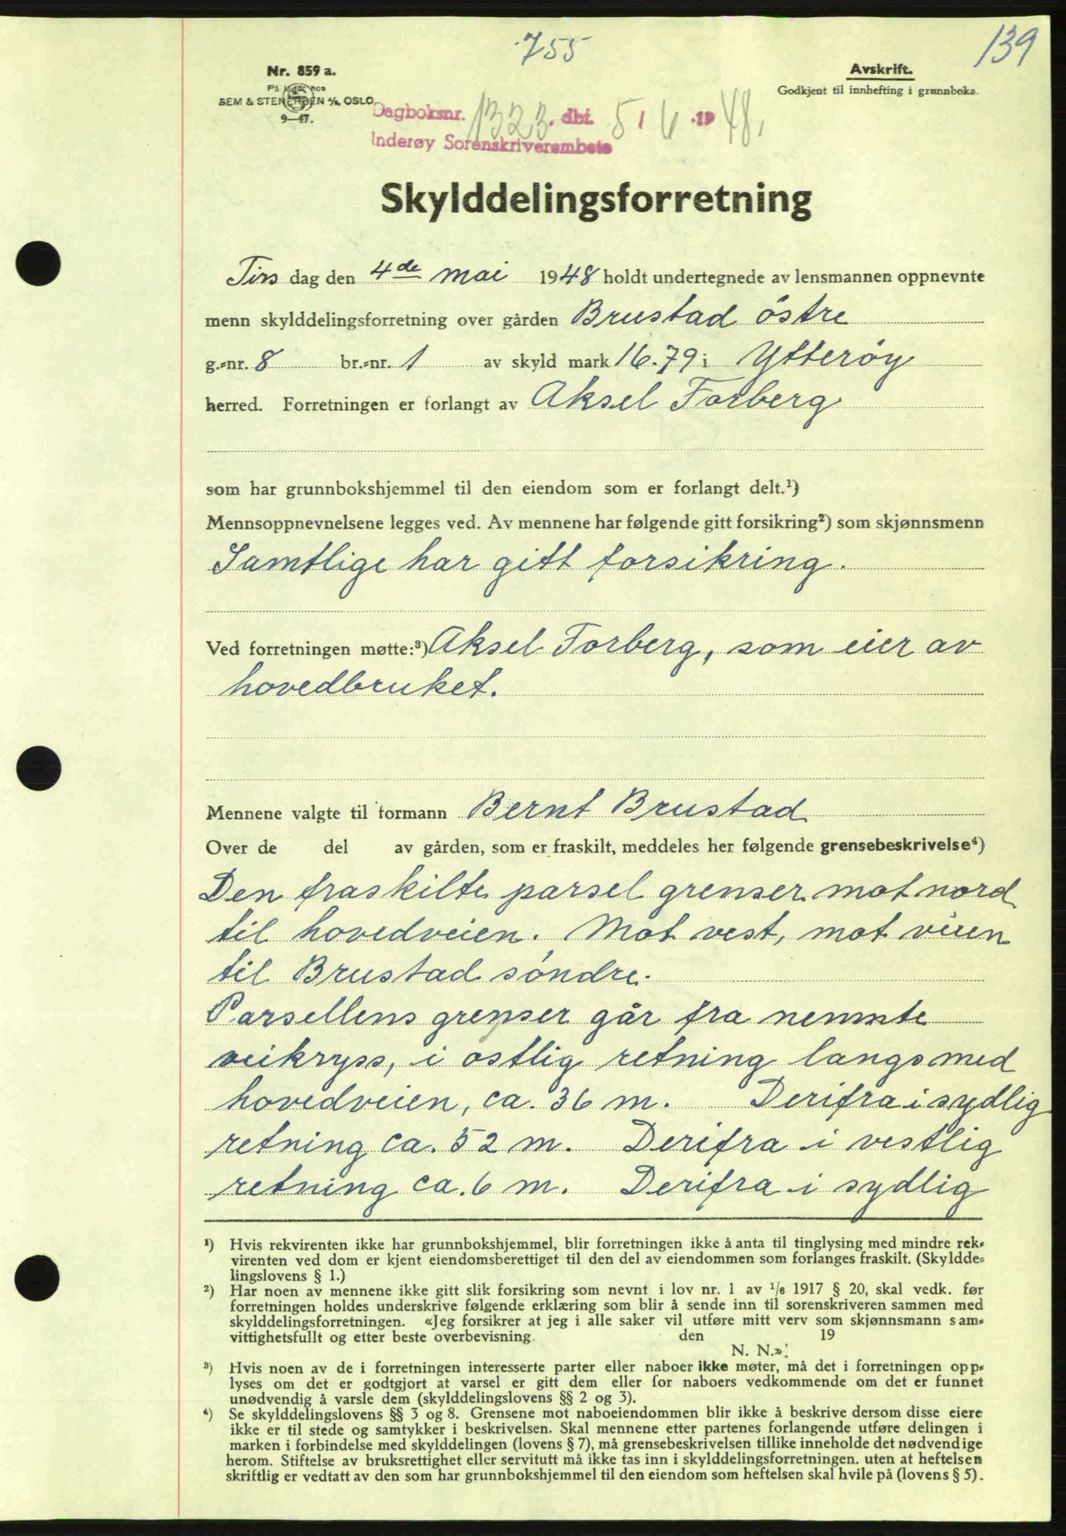 755
139
Nr. 859 a.
På lager hos
SEM & STENERSEN A/S, OSLO
9—47.
Avskrift.
Godkjent til innhefting i grunnboka.
Dagboksnr. 1323, dbf. 5/6 - 19 48.
Inderøy Sorenskriverembete
Skylddelingsforretning
Tirs dag den 4de mai 1948 holdt undertegnede av lensmannen oppnevnte
menn skylddelingsforretning over gården Brustad östre
g.-nr. 8 br.-nr. 1 av skyld mark 16.79 i Ytteröy
herred. Forretningen er forlangt av Aksel Forberg
som har grunnbokshjemmel til den eiendom som er forlangt delt.¹)
Mennsoppnevnelsene legges ved. Av mennene har følgende gitt forsikring²) som skjønnsmenn
Samtlige har gitt forsikring.
Ved forretningen møtte:³) Aksel Forberg, som eier av
hovedbruket.
Mennene valgte til formann Bernt Brustad
Over de del av gården, som er fraskilt, meddeles her følgende grensebeskrivelse⁴)
Den fraskilte parsel grenser mot nord
til hovedveien. Mot vest, mot veien
til Brustad söndre.
Parsellens grenser går fra nemnte
veikryss, i ostlig retning langs med
hovedveien, ca. 36 m. Derifra i sydlig
retning ca. 52 m. Derifra i vestlig
retning ca. 6 m. Derifra i sydlig
¹) Hvis rekvirenten ikke har grunnbokshjemmel, blir forretningen ikke å anta til tinglysing med mindre rek-
virenten ved dom er kjent eiendomsberettiget til den del av eiendommen som forlanges fraskilt. (Skyldde-
lingslovens § 1.)
²) Har noen av mennene ikke gitt slik forsikring som nevnt i lov nr. 1 av 1/6 1917 § 20, skal vedk. før
forretningen holdes underskrive følgende erklæring som blir å sende inn til sorenskriveren sammen med
skylddelingsforretningen. «Jeg forsikrer at jeg i alle saker vil utføre mitt verv som skjønnsmann sam-
vittighetsfullt og etter beste overbevisning. den 19
N. N.»
³) Hvis noen av de i forretningen interesserte parter eller naboer ikke møter, må det i forretningen opp-
lyses om det er godtgjort at varsel er gitt dem eller for naboers vedkommende om det er funnet
unødvendig å varsle dem (skylddelingslovens §§ 2 og 3).
⁴) Se skylddelingslovens §§ 3 og 8. Grensene mot naboeiendommen blir ikke å beskrive dersom disse eiere
ikke er til stede og samtykker i beskrivelsen. Skal mennene etter partenes forlangende utføre delingen i
marken i forbindelse med skylddelingen (lovens § 7), må grensebeskrivelsen tillike inneholde det nødvendige
herom. Stiftelse av bruksrettighet eller servitutt må ikke tas inn i skylddelingsforretningen. uten at heftelsen
skriftlig er vedtatt av den som har grunnbokshjemmel til den eiendom som heftelsen skal hvile på (lovens § 5).